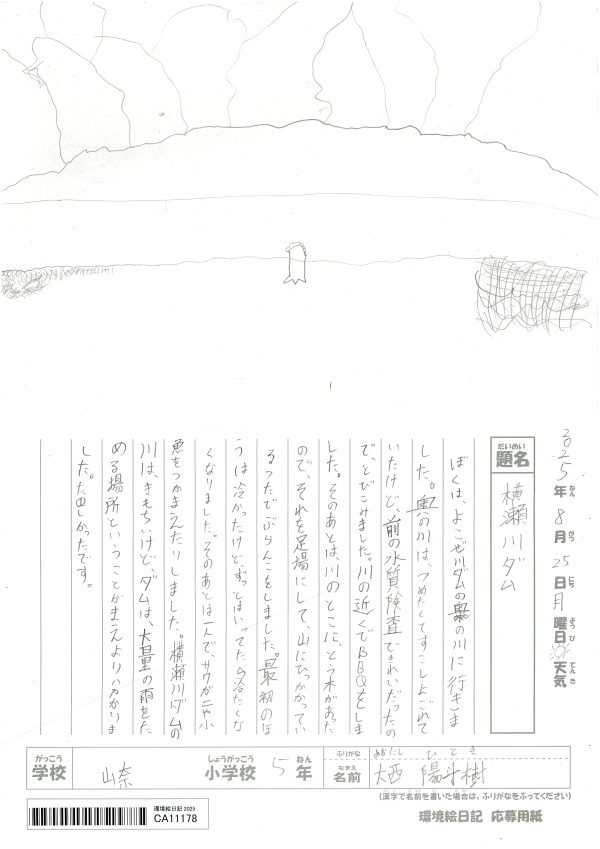 2025年8月25日月曜日 天気
ねん がつ にち ようび てんき
だいめい
題名
横瀬川ダム
ぼくは、よこぜ川ダムの奥の川に行きま
した。奥の川は、つめたくてすこしよごれて
いたけど、前の水質険査できれいだったの
で、とびこみました。川の近くでBBQをしま
した。そのあとは、川のとこに、とう木があった
ので、それを足場にして、山にひっかかってい
るつたでぶらんこをしました。最初のほ
うは冷かったけどずっとはいってたら冷たくな
くなりました。そのあとは一人で、サワガニや小
魚をつかまえたりしました。横瀬川ダムの
川は、きもちいけど、ダムは、大量の雨をた
める場所ということがまえよりハかかりま
した。たのしかったです。
がっこう
学校
山奈
しょうがっこう
小学校
5
ねん
年
ふりがな
ひとき
なまえ
名前
大西 陽斗樹
(漢字で名前を書いた場合は、ふりがなをふってください)
環境絵日記 2025
CA11178
環境絵日記 応募用紙